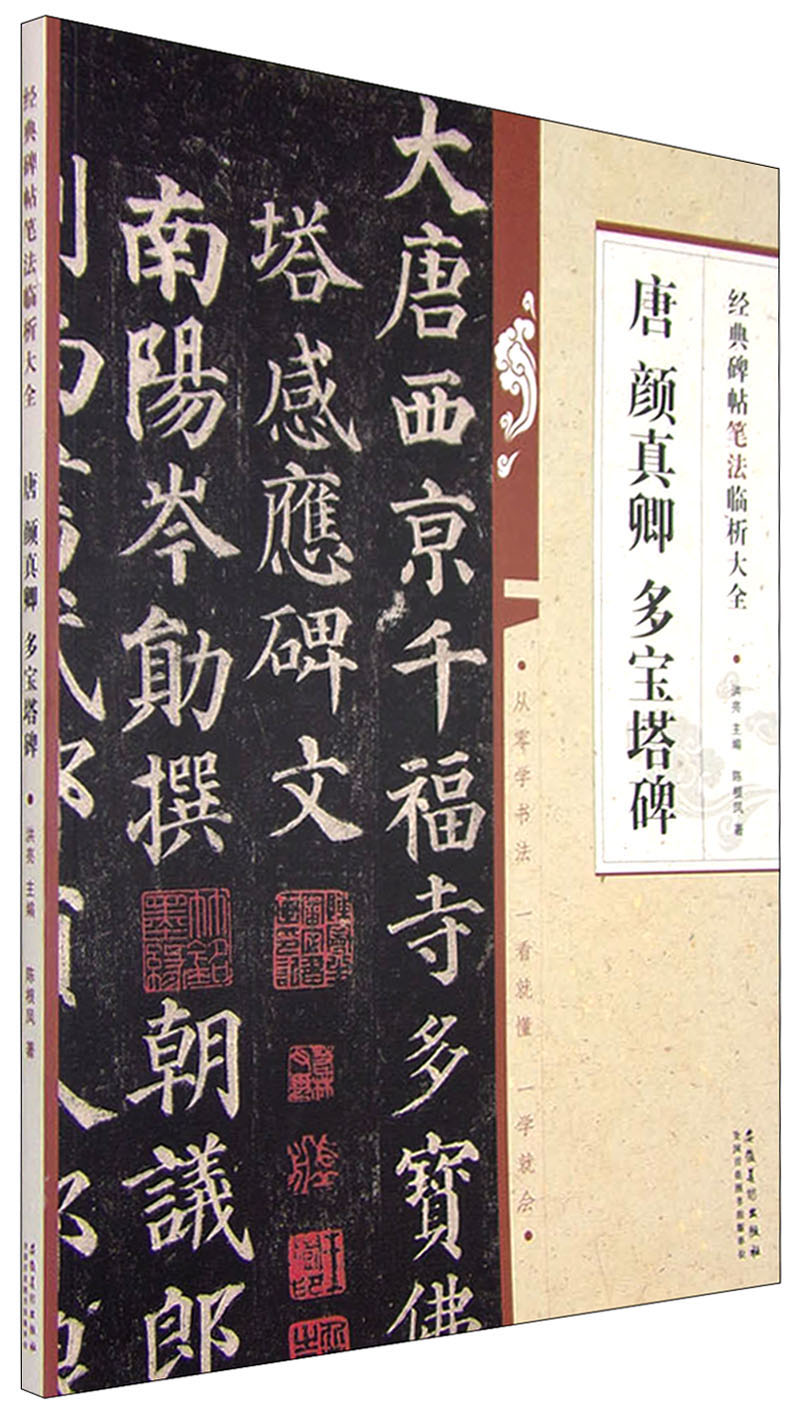 经典碑帖笔法临析大全
唐 颜真卿 多宝塔碑
洪亮 主编 陈根凤 著
安徽美术出版社
全国百佳图书出版单位
从零学书法 一看就懂 一学就会
大唐西京千福寺多寶佛
塔感應碑文
南陽岑勛撰 朝議郎
经典碑帖笔法临析大全 唐 颜真卿 多宝塔碑
洪亮 主编 陈根凤 著
安徽美术出版社
全国百佳图书出版单位